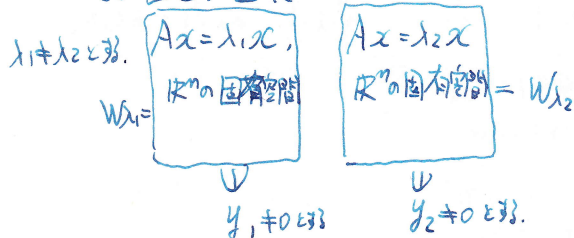 λ₁≠λ₂とする.
Ax=λ₁x,
R^nの固有空間
Wλ₁=
Ax=λ₂x
R^nの固有空間
= Wλ₂
y₁≠0とする
y₂≠0とする.